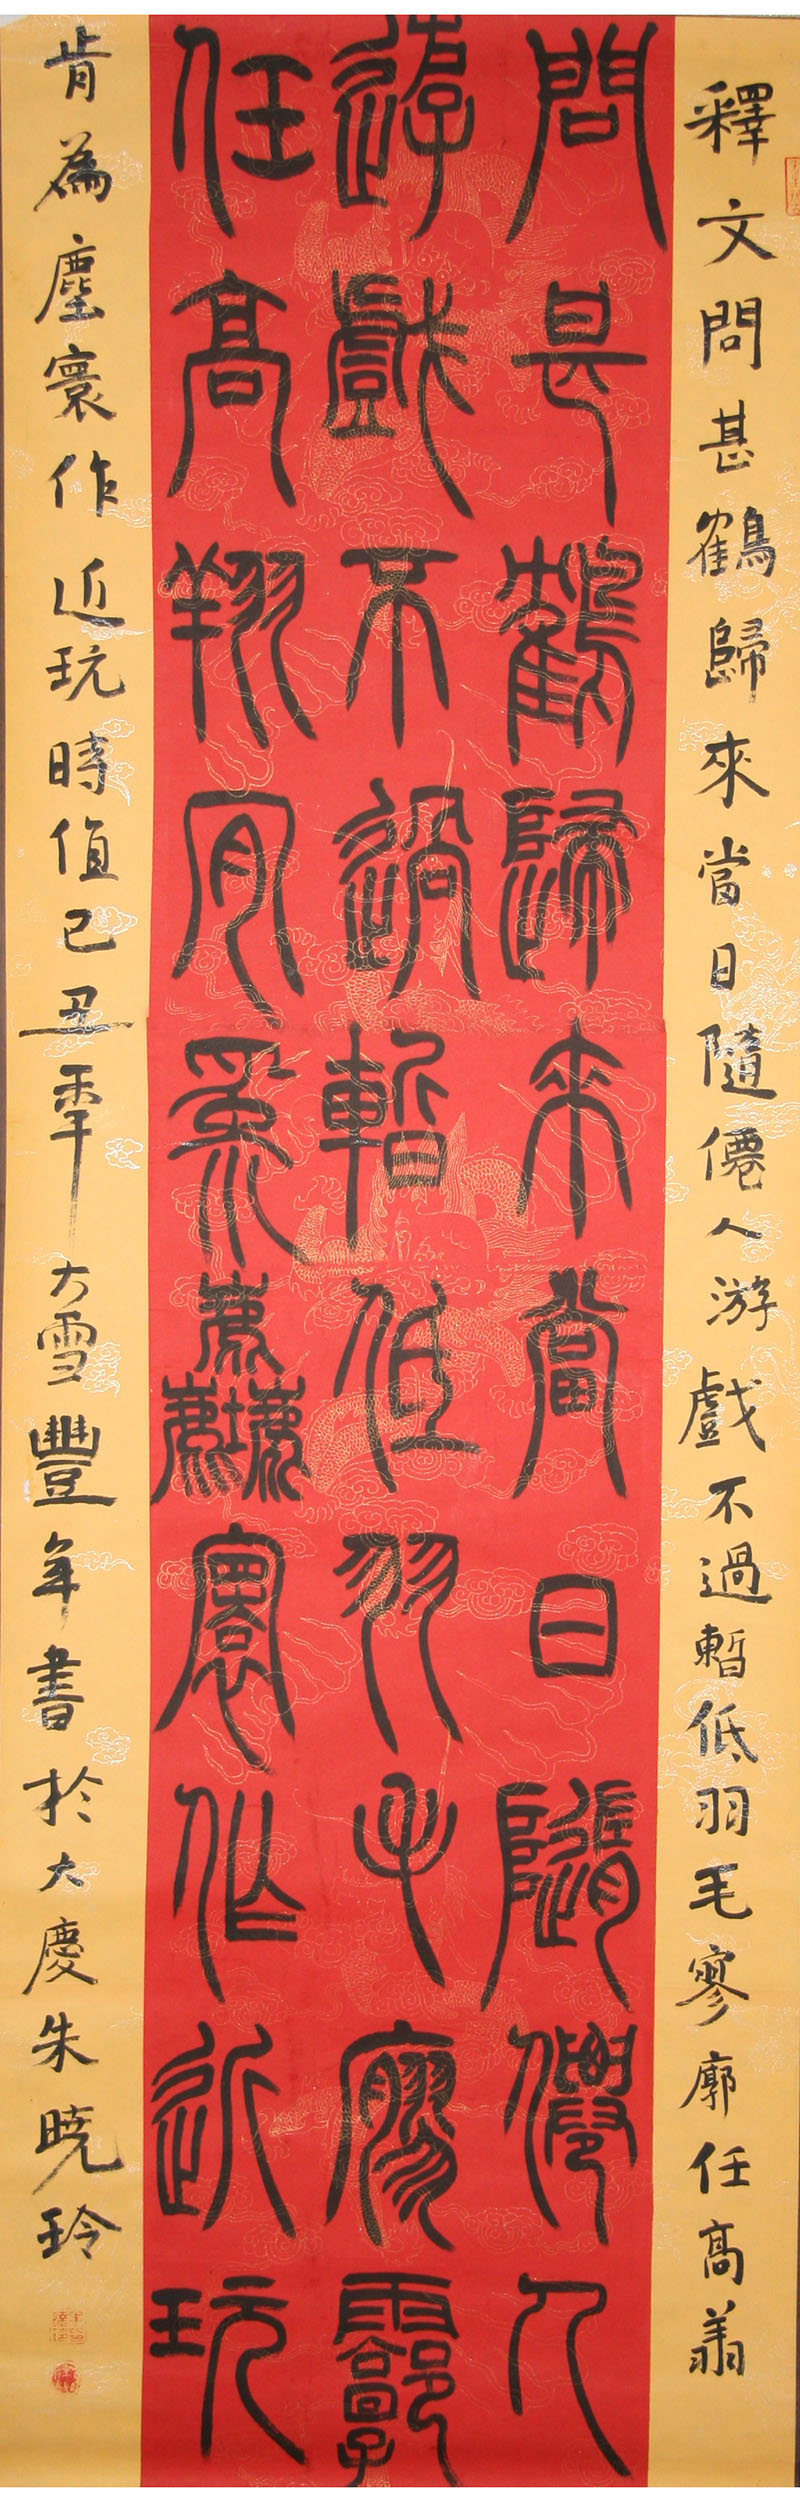 釋文問甚鶴歸來當日隨僊人游戲不過暫低羽毛寥廓任高翔
問甚鶴歸來當日隨僊人
遊戲不過暫低羽毛寥廓
任高翔肎為塵寰作近玩
肯為塵寰作近玩時值己丑季大雪豐年書於大慶朱曉玲